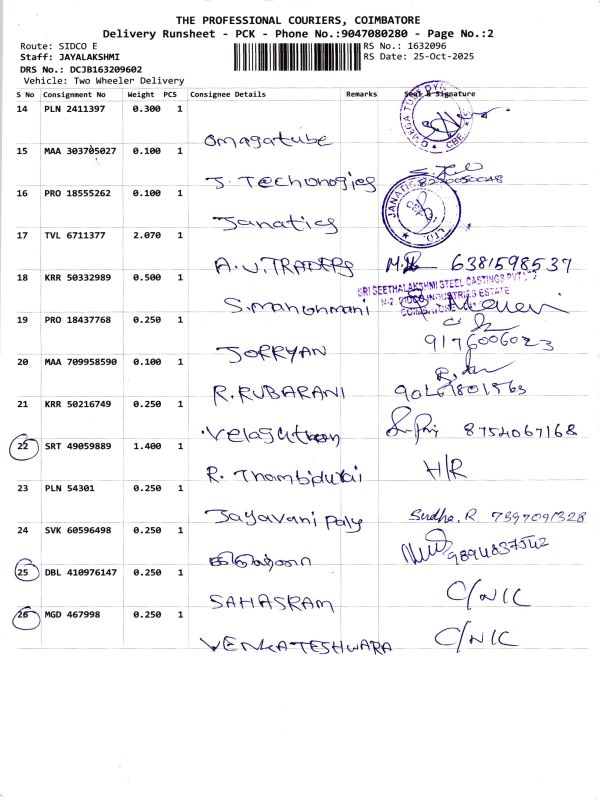 THE PROFESSIONAL COURIERS, COIMBATORE
Delivery Runsheet - PCK - Phone No.:9047080280 - Page No.:2
Route: SIDCO E RS No.: 1632096
Staff: JAYALAKSHMI RS Date: 25-Oct-2025
DRS No.: DCJB163209602
Vehicle: Two Wheeler Delivery
S No Consignment No Weight PCS Consignee Details Remarks Seal & Signature
14 PLN 2411397 0.300 1
Omagatube
15 MAA 303705027 0.100 1
J. Techonogies
16 PRO 18555262 0.100 1
Janatics
17 TVL 6711377 2.070 1
A.V.TRADERS 6381598537
18 KRR 50332989 0.500 1
SRI SEETHALAKSHMI STEEL CASTINGS PVT LTD
N-2, SIDCO INDUSTRIES ESTATE
S.manonmani
19 PRO 18437768 0.250 1
JORRYAN 9176006023
20 MAA 709958590 0.100 1
R.RUBARANI
21 KRR 50216749 0.250 1
8754067168
22 SRT 49059889 1.400 1
R. Thambidurai H/R
23 PLN 54301 0.250 1
Jayavani Paly Sudha.R. 7397091328
24 SVK 60596498 0.250 1
9894837542
25 DBL 410976147 0.250 1
SAHASRAM C/NIC
26 MGD 467998 0.250 1
VENKATESHWARA C/NIC